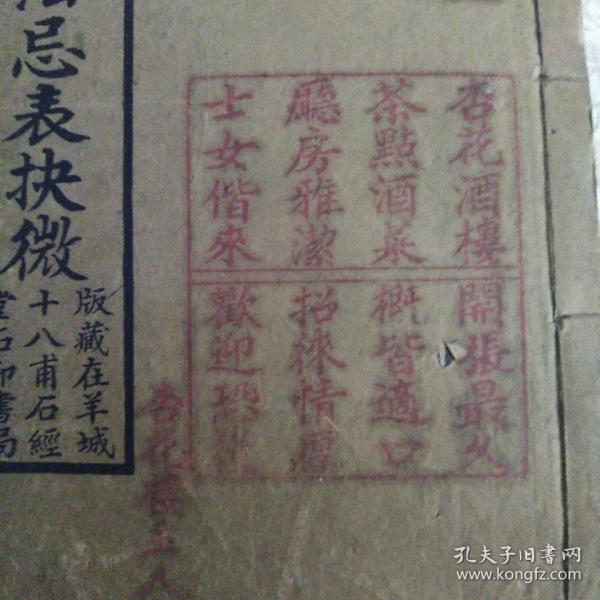 杏花酒樓
開張最久
茶點酒菜
概皆適口
廳房雅潔
招徠情厚
士女偕來
歡迎恐
杏花樓主人
忌表抉微
版藏在羊城
十八甫石經
堂石印書局
孔夫子旧書网
www.kongfz.com